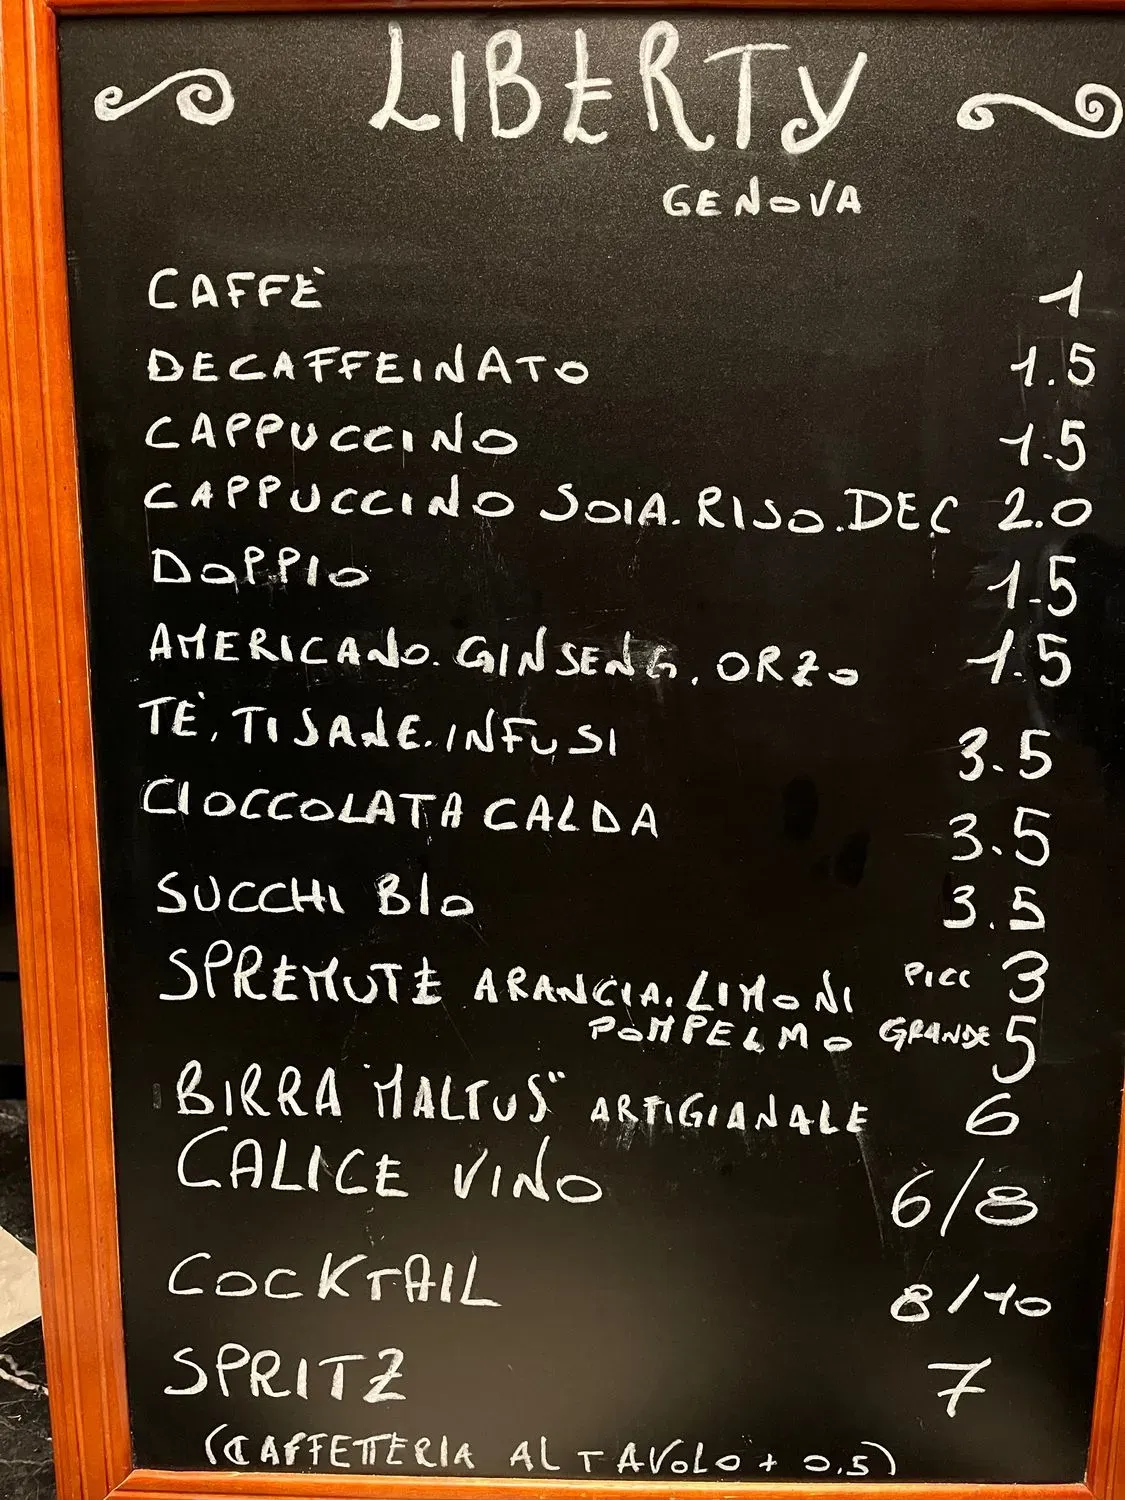 LIBERTY
GENOVA
CAFFÈ 1
DECAFFEINATO 1.5
CAPPUCCINO 1.5
CAPPUCCINO SOIA.RISO.DEC 2.0
DOPPIO 1.5
AMERICANO.GINSENG.ORZO 1.5
TÈ,TISANE.INFUSI 3.5
CIOCCOLATA CALDA 3.5
SUCCHI BIO 3.5
SPREMUTE ARANCIA.LIMONI PICC 3
POMPELMO GRANDE 5
BIRRA "MALTUS" ARTIGIANALE 6
CALICE VINO 6/8
COCKTAIL 8/10
SPRITZ 7
(CAFFETTERIA AL TAVOLO + 0,5)